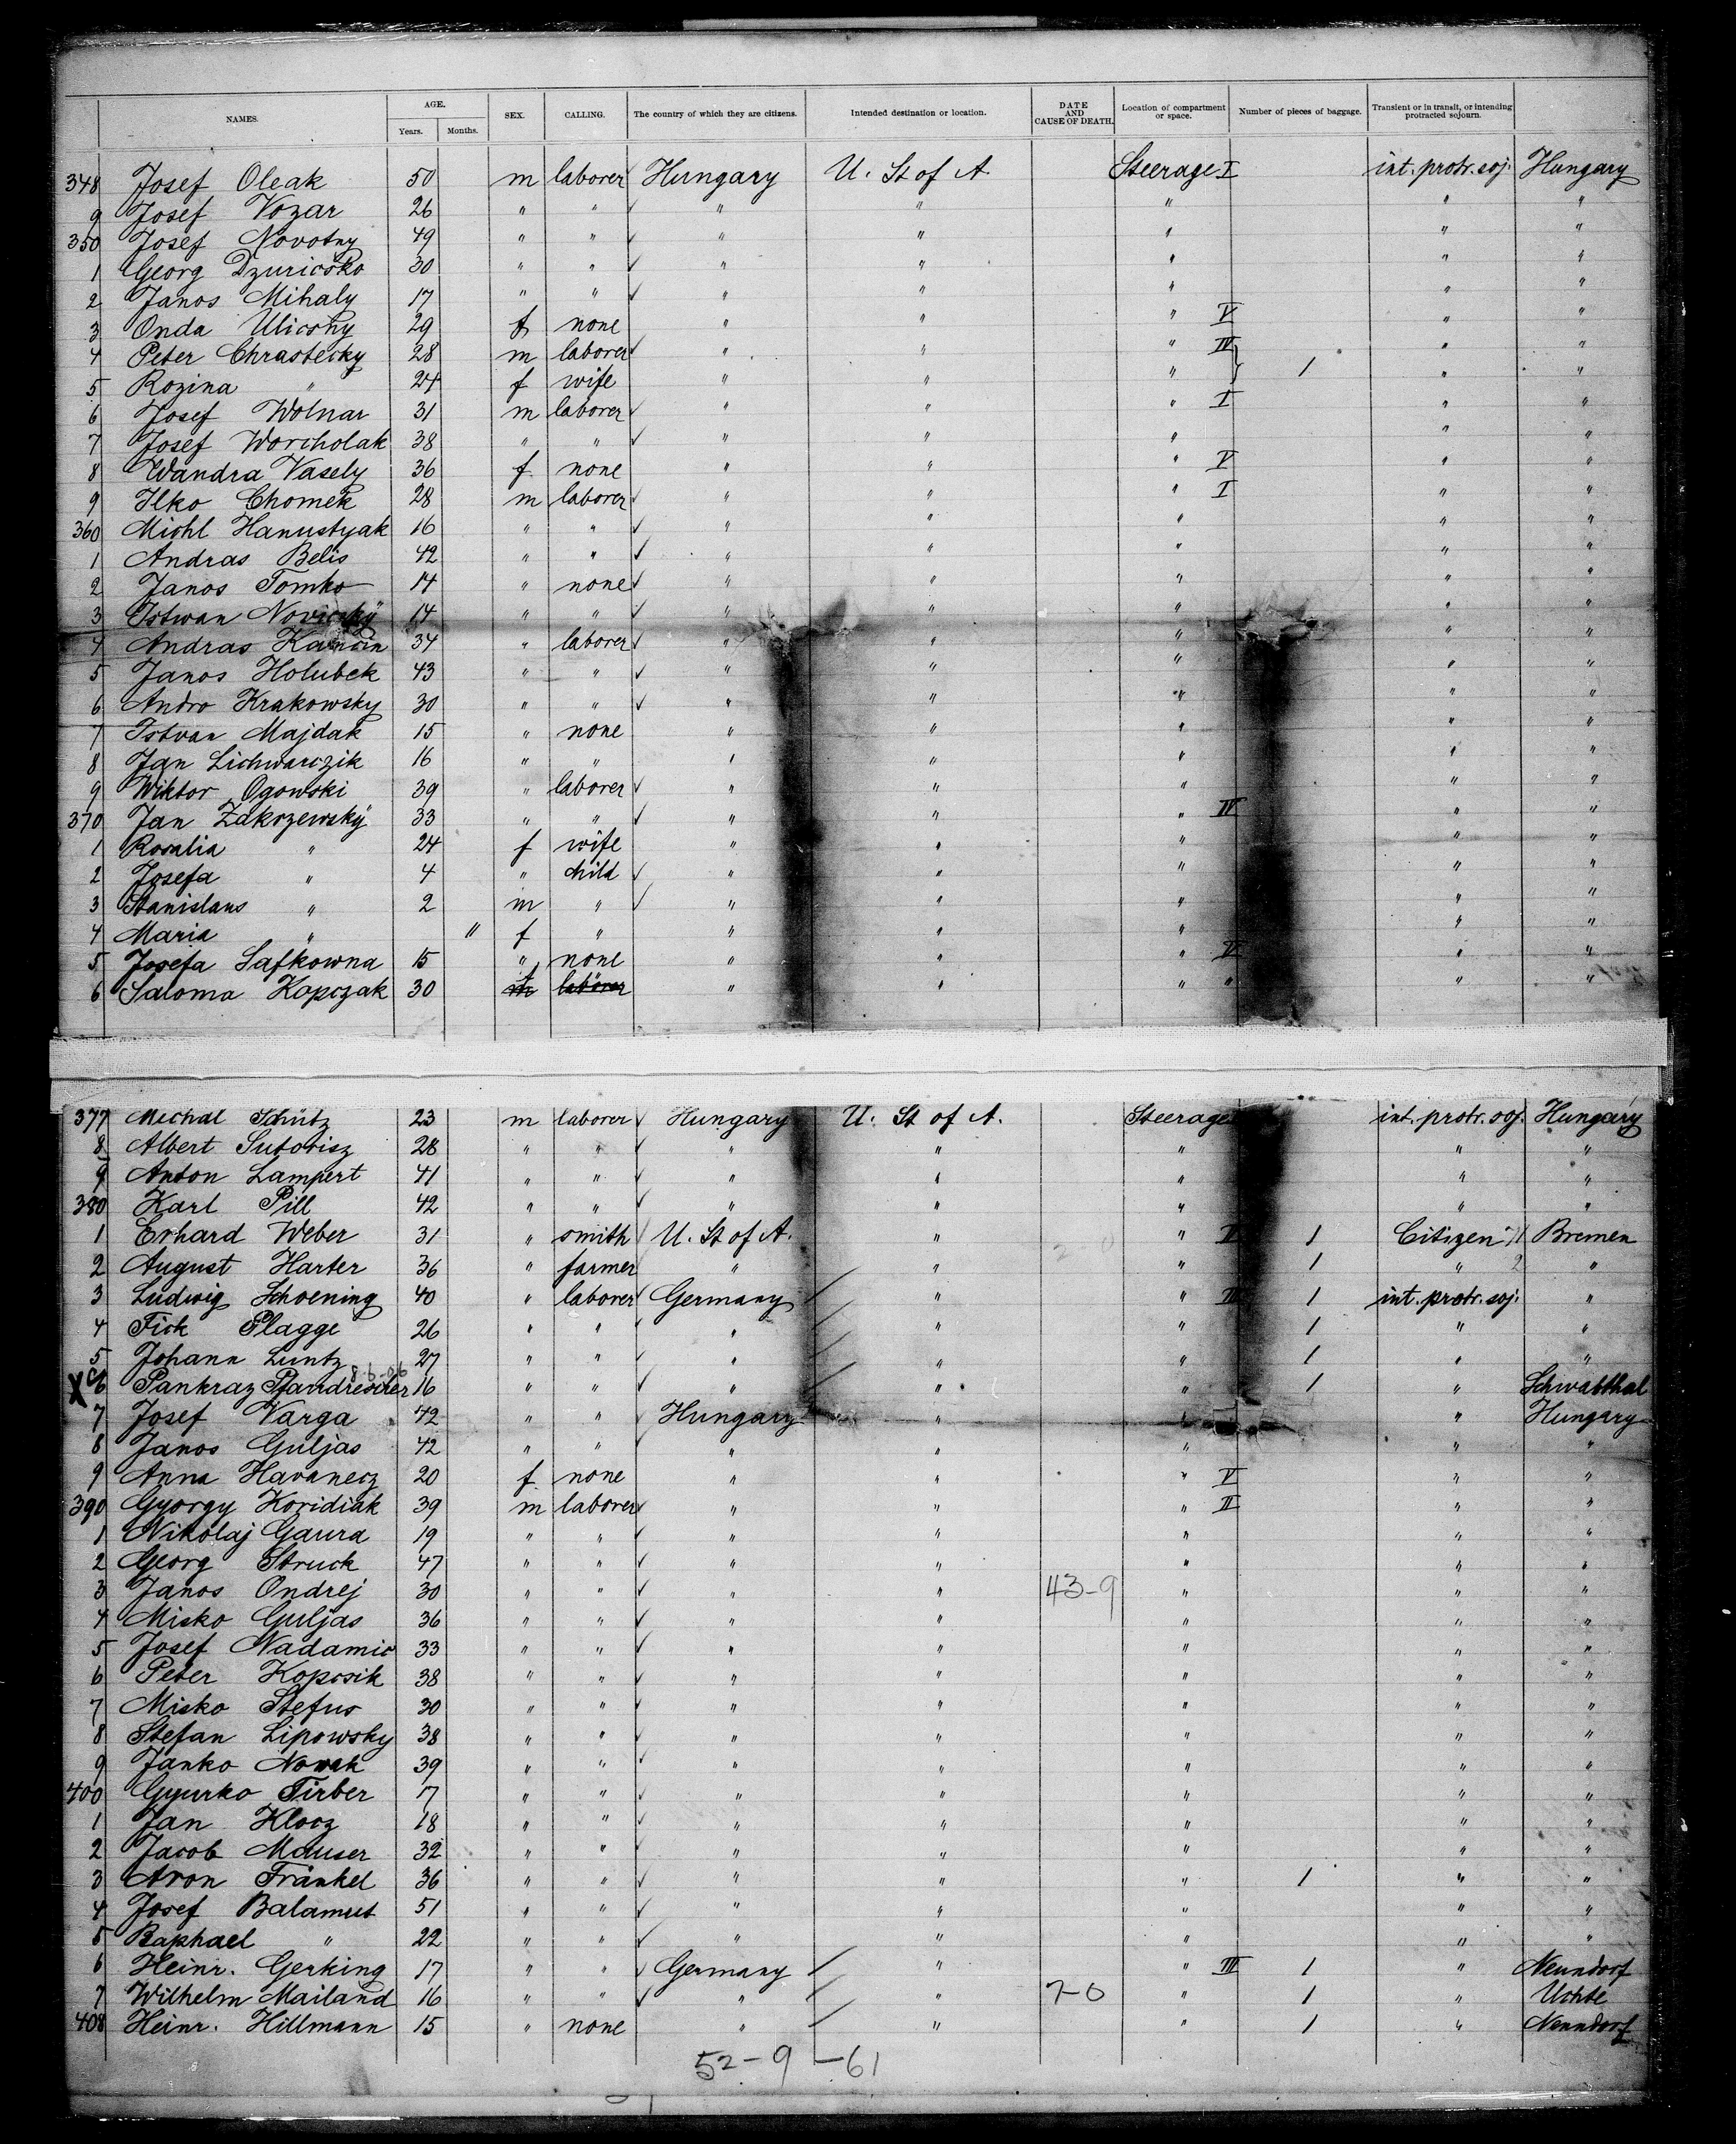 NAMES. AGE. Years. Months. SEX. CALLING. The country of which they are citizens. Intended destination or location. DATE AND CAUSE OF DEATH. Location of compartment or space. Number of pieces of baggage. Transient or in transit, or intending protracted sojourn.
348 Josef Oleak 50 m laborer Hungary U. St of A. Steerage I int. protr. soj. Hungary
9 Josef Vozar 26 " " " " " " "
350 Josef Novotny 49 " " " " " " "
1 Georg Dzuricsko 30 " " " " " " "
2 Janos Mihaly 17 " " " " " " "
3 Onda Ulicsny 29 f none " " " V " "
4 Peter Chrastecky 28 m laborer " " " IV 1 " "
5 Rozina " 24 f wife " " " " "
6 Josef Wolnar 31 m laborer " " " I " "
7 Josef Worcholak 38 " " " " " " "
8 Wandra Vasely 36 f none " " " V " "
9 Ilko Chomek 28 m laborer " " " I " "
360 Michl Hanustyak 16 " " " " " " "
1 Andras Belis 42 " " " " " " "
2 Janos Tomko 14 " none " " " " "
3 Istwan 14 " " " " " " "
4 Andras 34 " laborer " " " " "
5 Janos Holubek 43 " " " " " " "
6 Andro Krakowsky 30 " " " " " " "
7 Istvan Majdak 15 " none " " " " "
8 Jan Lichwarczik 16 " " " " " " "
9 Wiktor Ogowski 39 " laborer " " " " "
370 Jan Zakrzewský 33 " " " " " IV " "
1 Rosalia " 24 f wife " " " " "
2 Josefa " 4 " child " " " " "
3 Stanislaus " 2 m " " " " " "
4 Maria " " f " " " " " "
5 Josefa Safkowna 15 " none " " " V " "
6 Saloma Kopczak 30 m laborer " " " " " "
377 Michal Schütz 23 m laborer Hungary U. St of A. Steerage int. protr. soj. Hungary
8 Albert Sutorisz 28 " " " " " " "
9 Anton Lampert 41 " " " " " " "
380 Karl Pill 42 " " " " " " "
1 Erhard Weber 31 " smith U. St of A. " " II 1 Citizen 1 Bremen
2 August Harter 36 " farmer " " " 1 " 2 "
3 Ludwig Schoening 40 " laborer Germany " " III 1 int. protr. soj. "
4 Fick Plagge 26 " " " " " 1 " "
5 Johann Luntz 27 " " " " " 1 " "
X 6 Pankraz 16 " " " " " 1 " Schwabthal
7 Josef Varga 42 " " Hungary " " " Hungary
8 Janos Guljas 42 " " " " " " "
9 Anna Havanecz 20 f none " " " V " "
390 Gyorgy Koridiak 39 m laborer " " " II " "
1 Nikolaj Gaura 19 " " " " " " "
2 Georg Struck 47 " " " " " " "
3 Janos Ondrej 30 " " " " 43-9 " " "
4 Misko Guljas 36 " " " " " " "
5 Josef Nadamic 33 " " " " " " "
6 Peter Kopcsik 38 " " " " " " "
7 Misko Stefus 30 " " " " " " "
8 Stefan Lipowsky 38 " " " " " " "
9 Janko Nowak 39 " " " " " " "
400 Gyurko Tirber 17 " " " " " " "
1 Jan Klocz 18 " " " " " " "
2 Jacob Mauser 32 " " " " " " "
3 Aron Fränkel 36 " " " " " 1 " "
4 Josef Balamut 51 " " " " " " "
5 Raphael " 22 " " " " " " "
6 Heinr. Gerking 17 " " Germany " " III 1 " Nenndorf
7 Wilhelm Mailand 16 " " " " 7-0 " 1 " Uchte
408 Heinr. Hillmann 15 " none " " " 1 " Nenndorf
52-9-61